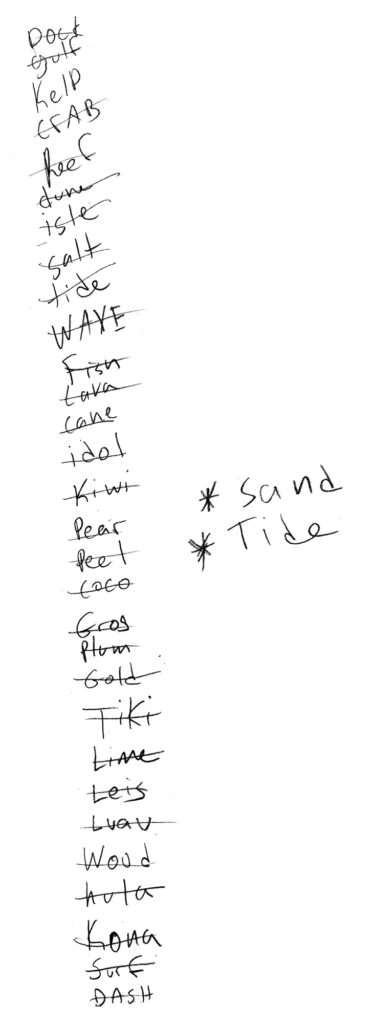 Dock
Gulf
Kelp
CrAB
Reef
dune
isle
salt
tide
WAVE
Fish
Lava
cane
idol
Kiwi
Pear
Peel
coco
Grog
Plum
Gold
TiKi
Lime
Leis
Luau
Wood
hula
Kona
Surf
DASH
* Sand
* Tide